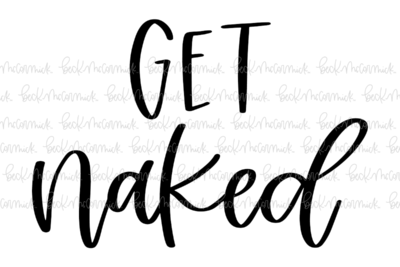 GET
naked